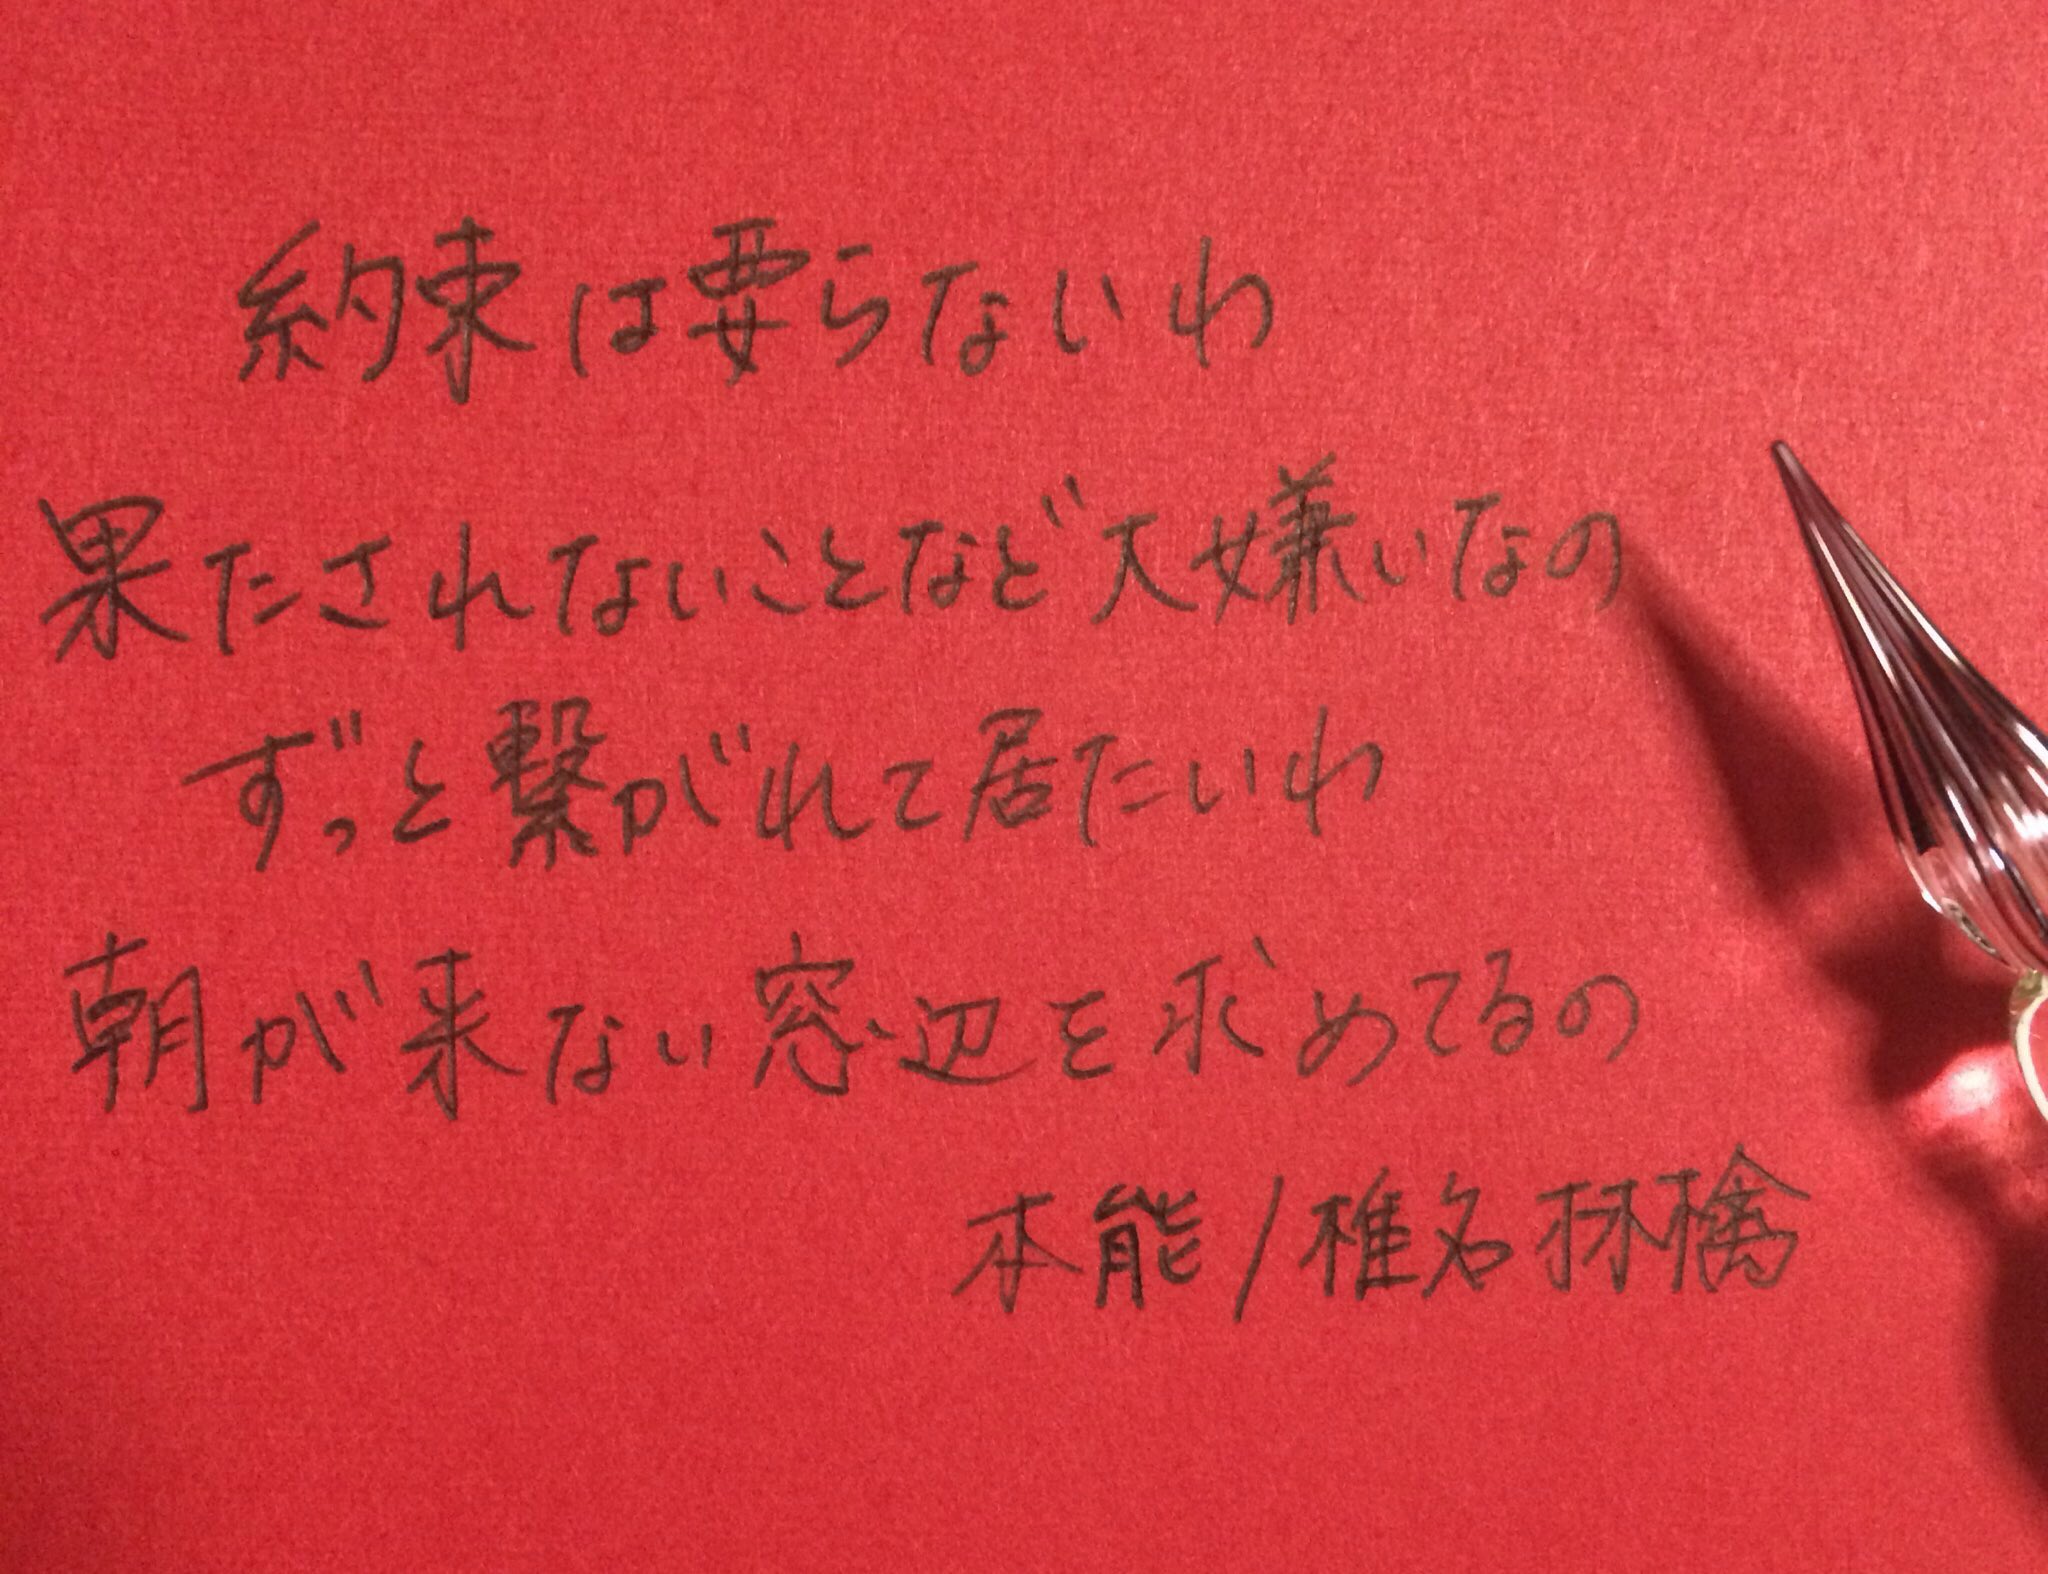 約束は要らないわ
果たされないことなど大嫌いなの
ずっと繋がれて居たいわ
朝が来ない窓辺を求めてるの
本能/椎名林檎